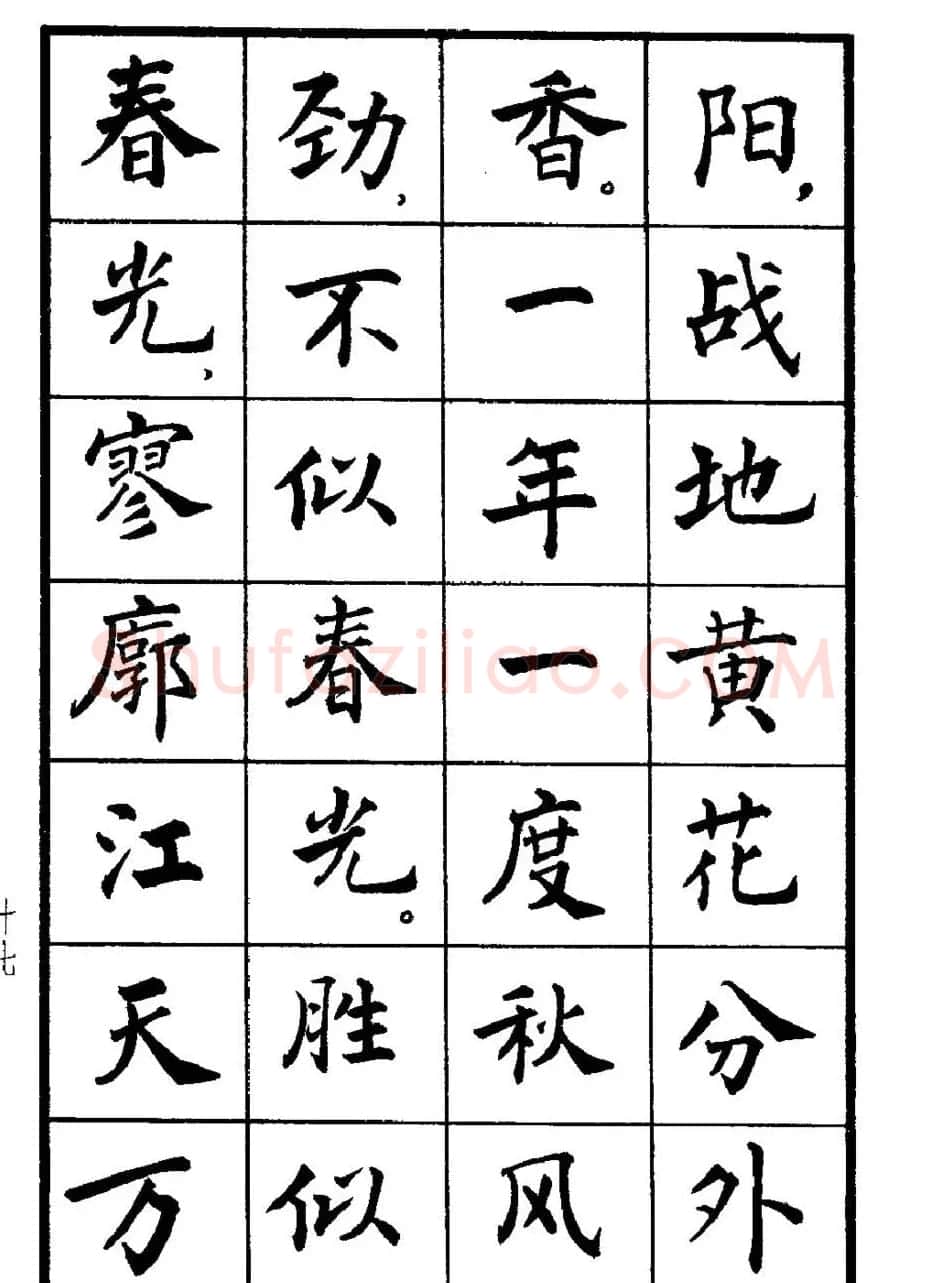 阳，战地黄花分外
香。一年一度秋风
劲，不似春光。胜似
春光，寥廓江天万
十七
Shufaziliao.COM